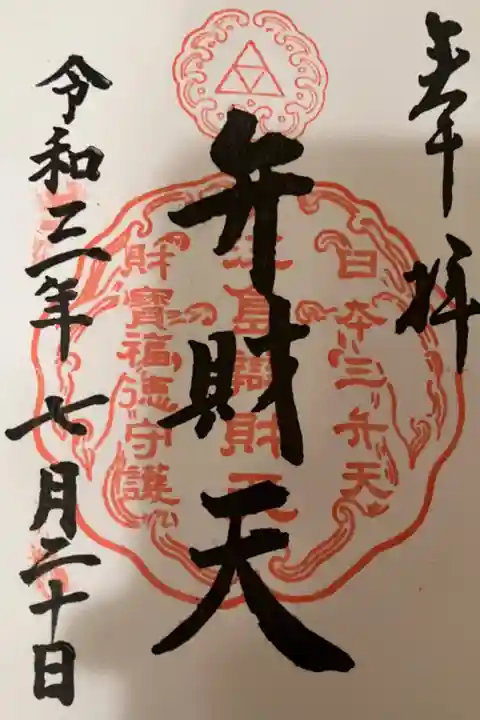 奉拝
日本三弁天
弁財天
島辯財天
財寳福徳守護
令和三年七月二十日